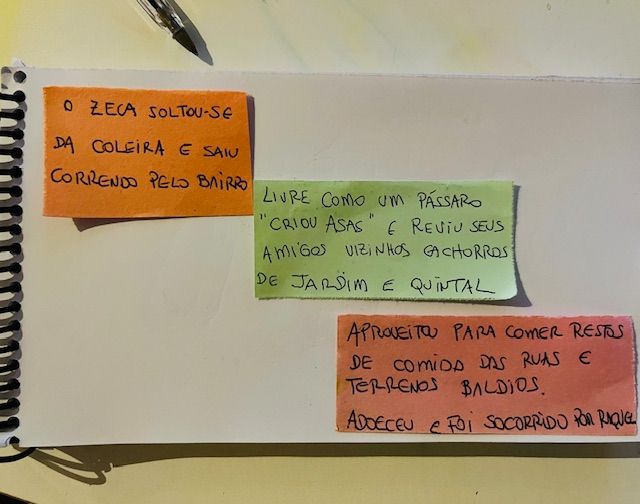 O ZECA SOLTOU-SE
DA COLEIRA E SAIU
CORRENDO PELO BAIRRO
LIVRE COMO UM PÁSSARO
"CRIOU ASAS" E REVIU SEUS
AMIGOS VIZINHOS CACHORROS
DE JARDIM E QUINTAL
APROVEITOU PARA COMER RESTOS
DE COMIDA DAS RUAS E
TERRENOS BALDIOS.
ADOECEU E FOI SOCORRIDO POR RAQUEL